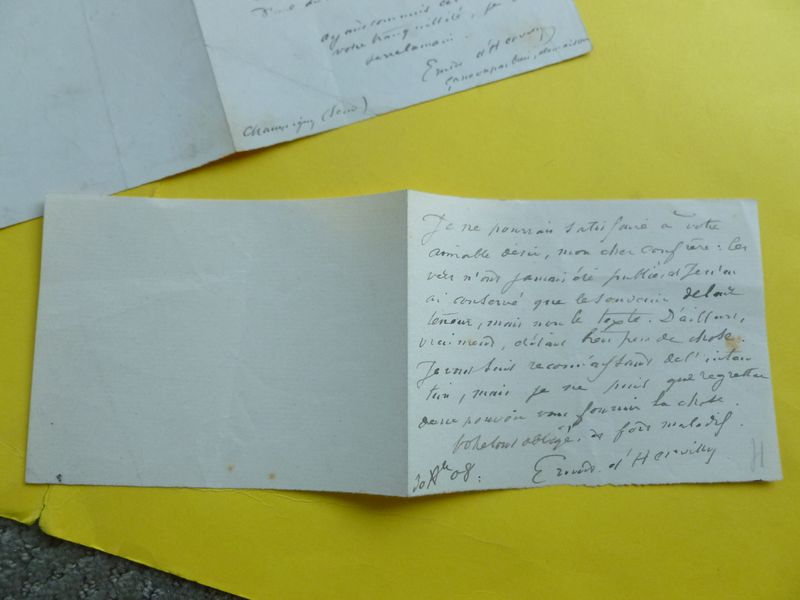 ayant commis ce
votre tranquillité, je
Ernest d'Hervilly
Champigny (Seine)
Je ne pourrais satisfaire à votre
aimable désir, mon cher confrère: les
vers n'ont jamais été publiés et je n'en
ai conservé que le souvenir de leur
teneur, mais non le texte. D'ailleurs,
vraiment, c'était bien peu de chose.
Je vous suis reconnaissant de l'inten
tion, mais je ne puis que regretter
de ne pouvoir vous fournir la chose.
Votre tout obligé, et fort maladif.
08.
Ernest d'Hervilly
H